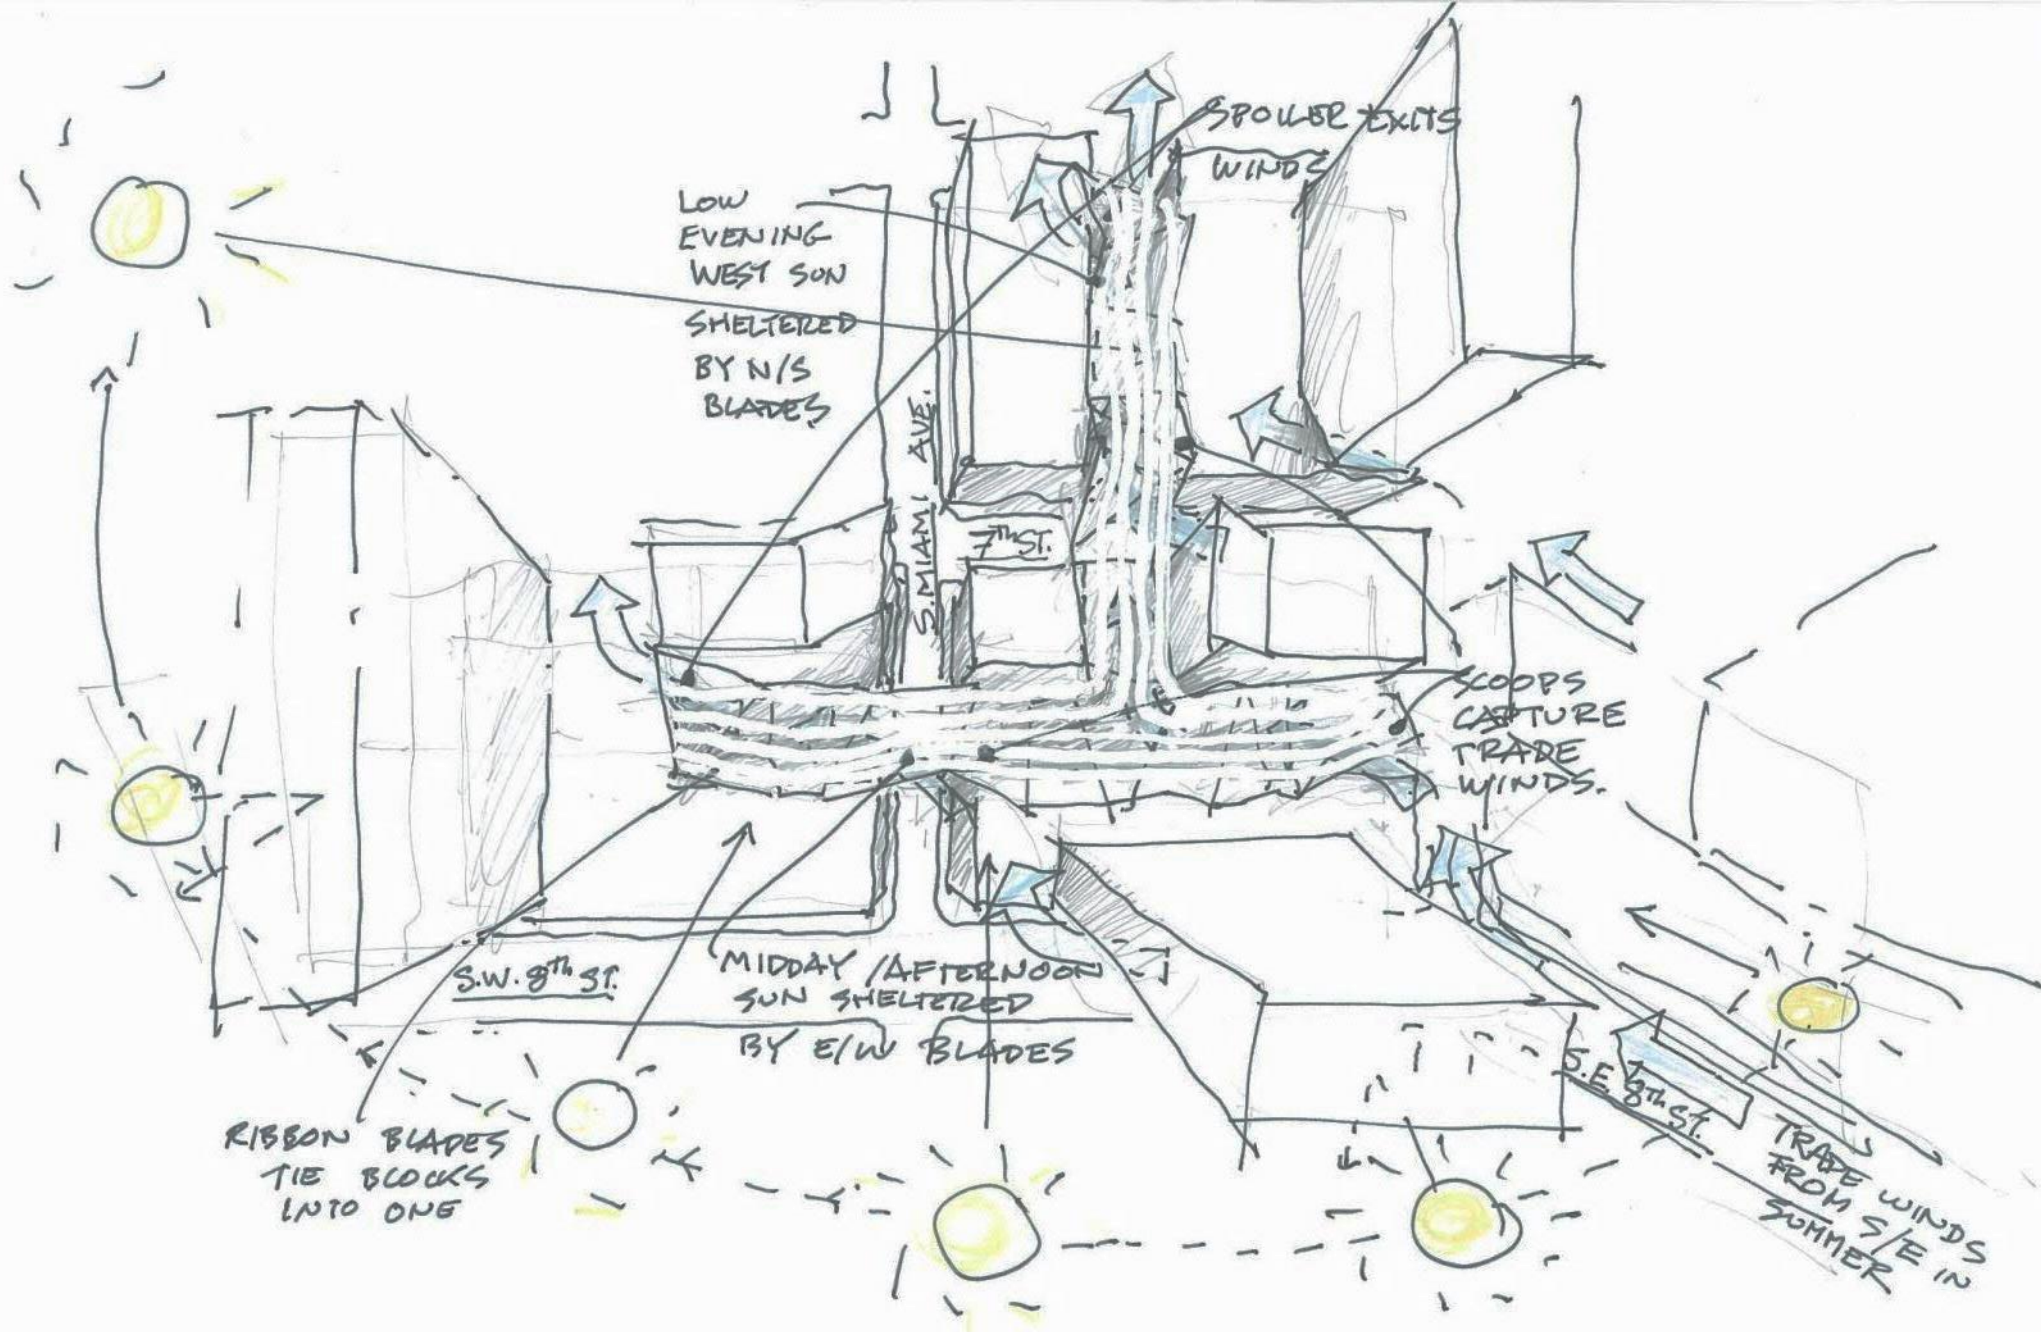 SPOILER EXITS
WINDS
LOW
EVENING
WEST SUN
SHELTERED
BY N/S
BLADES
S. MIAMI AVE.
7TH ST.
SCOOPS
CAPTURE
TRADE
WINDS.
S.W. 8TH ST.
MIDDAY / AFTERNOON
SUN SHELTERED
BY E/W BLADES
RIBBON BLADES
TIE BLOCKS
INTO ONE
S.E. 8TH ST.
TRADE WINDS
FROM S/E IN
SUMMER